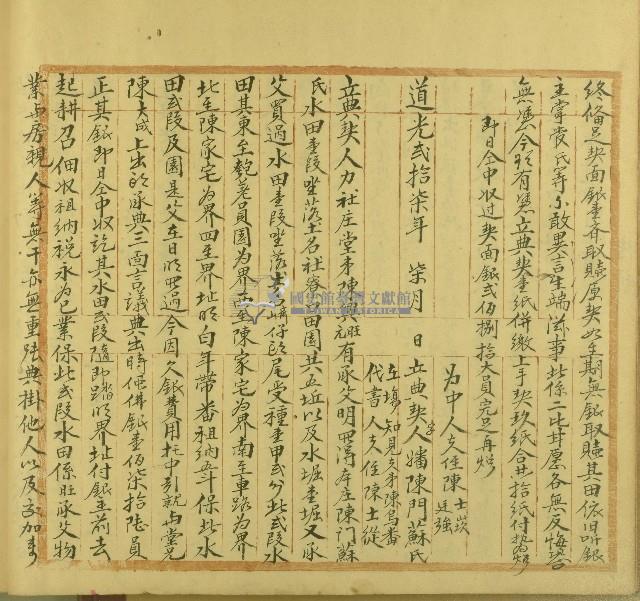 終備足契面銀壹齊取贖原契如至期無銀取贖其田依旧听銀
主掌管氏等不敢異言生端滋事此係二比甘愿各無反悔恐口
無憑今欲有憑立典契壹紙併繳上手契玖紙合共拾紙付執為炤
即日仝中收過契面銀弍佰捌拾大員完足再炤
為中人夫侄陳士崁
廷強
在塲知見夫弟陳烏番
代書人夫侄陳士從
道光弍拾柒年 柒月 日立典契人嬸陳門蘇氏
立典契人力社庄堂弟陳其旺元有承父明買得本庄陳門蘇
氏水田壹段坐落土名社寮
田園共五坵以及水堀壹堀又承
父買過水田壹段坐落土名
尾受種壹甲弍分此弍段水
田其東至
園為界西至陳家宅為界南至車路為界
北至陳家宅為界四至界址明白年帶番租納
保此水
田弍段及園是父在日明買過今因欠銀費用托中引就與堂兄
陳大成上出頭承典三面言議典出時
佛銀壹佰柒拾陸員
正其銀即日仝中收訖其水田弍段隨即踏明界址付銀主前去
起耕召佃收租納稅永為己業保此弍段水田係旺承父物
業與房親人等無干亦無重張典掛他人以及